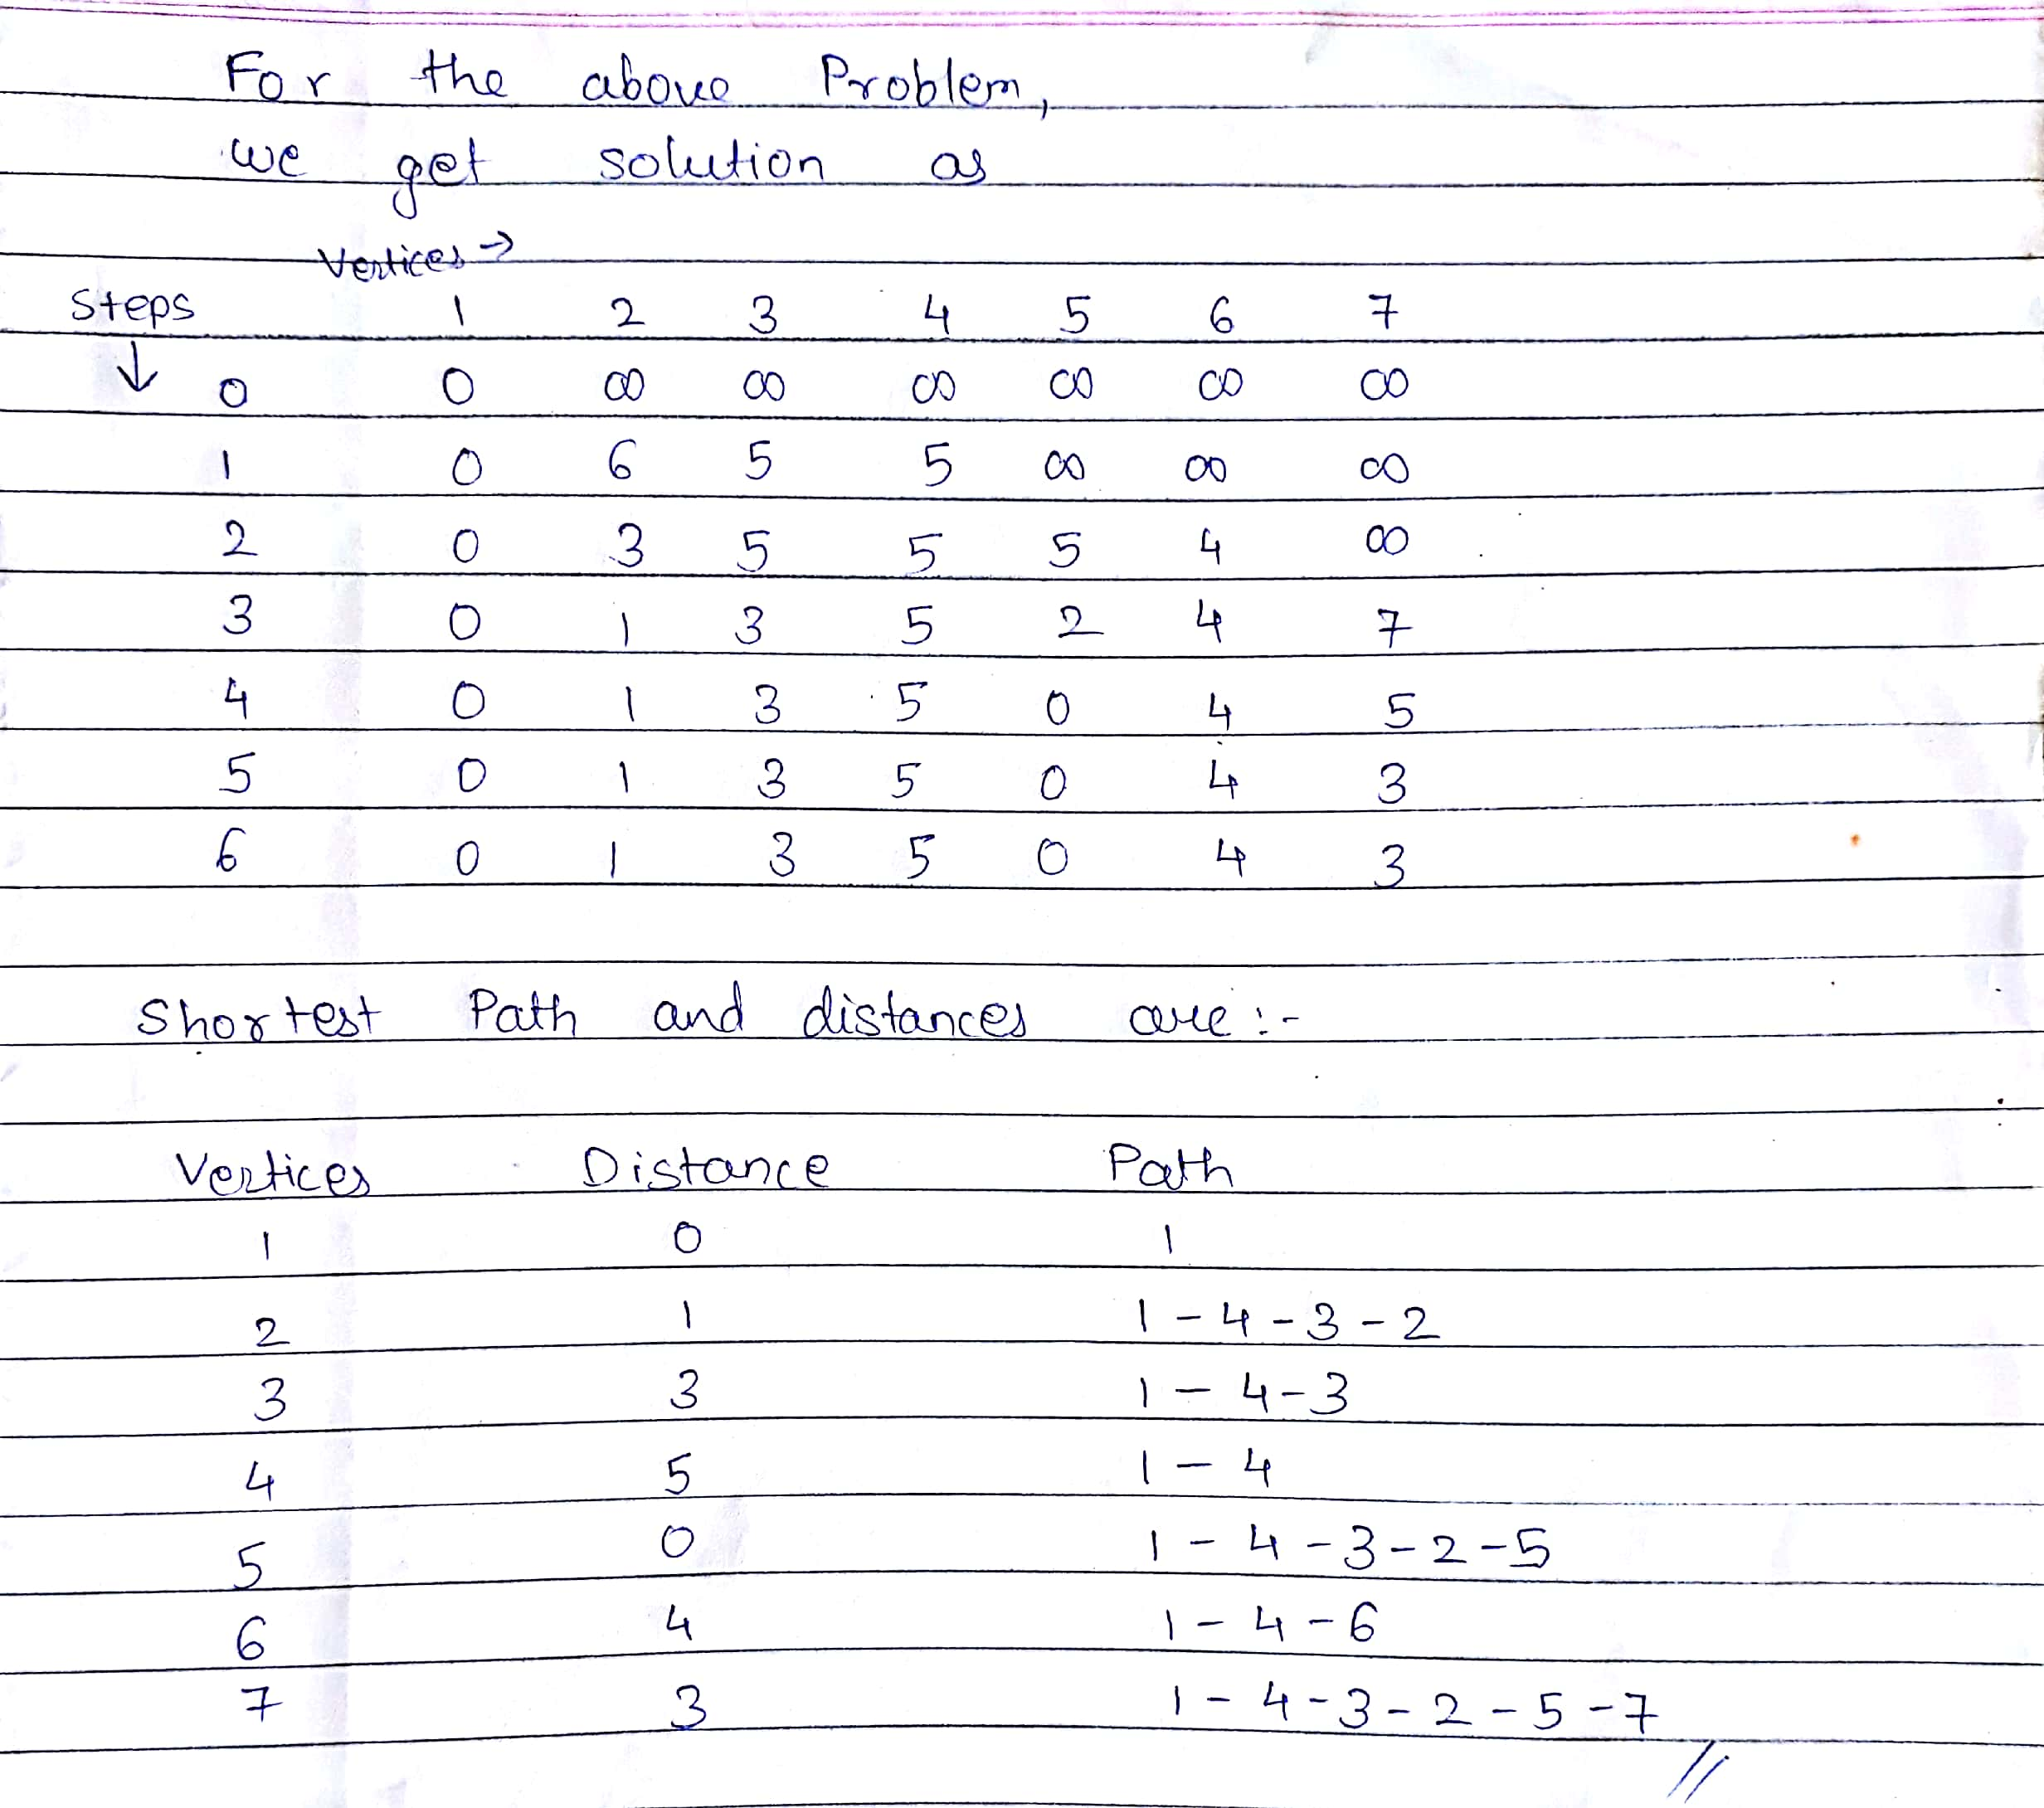 For the above Problem,
we get solution as
Vertices →
Steps 1 2 3 4 5 6 7
↓ 0 0 ∞ ∞ ∞ ∞ ∞ ∞
1 0 6 5 5 ∞ ∞ ∞
2 0 3 5 5 5 4 ∞
3 0 1 3 5 2 4 7
4 0 1 3 5 0 4 5
5 0 1 3 5 0 4 3
6 0 1 3 5 0 4 3
Shortest Path and distances are :-
Vertices Distance Path
1 0 1
2 1 1 - 4 - 3 - 2
3 3 1 - 4 - 3
4 5 1 - 4
5 0 1 - 4 - 3 - 2 - 5
6 4 1 - 4 - 6
7 3 1 - 4 - 3 - 2 - 5 - 7
//